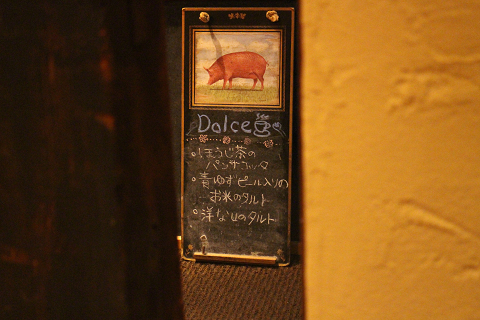 Dolce
・ほうじ茶の
パンナコッタ
・青ゆずピール入りの
お米のタルト
・洋なしのタルト